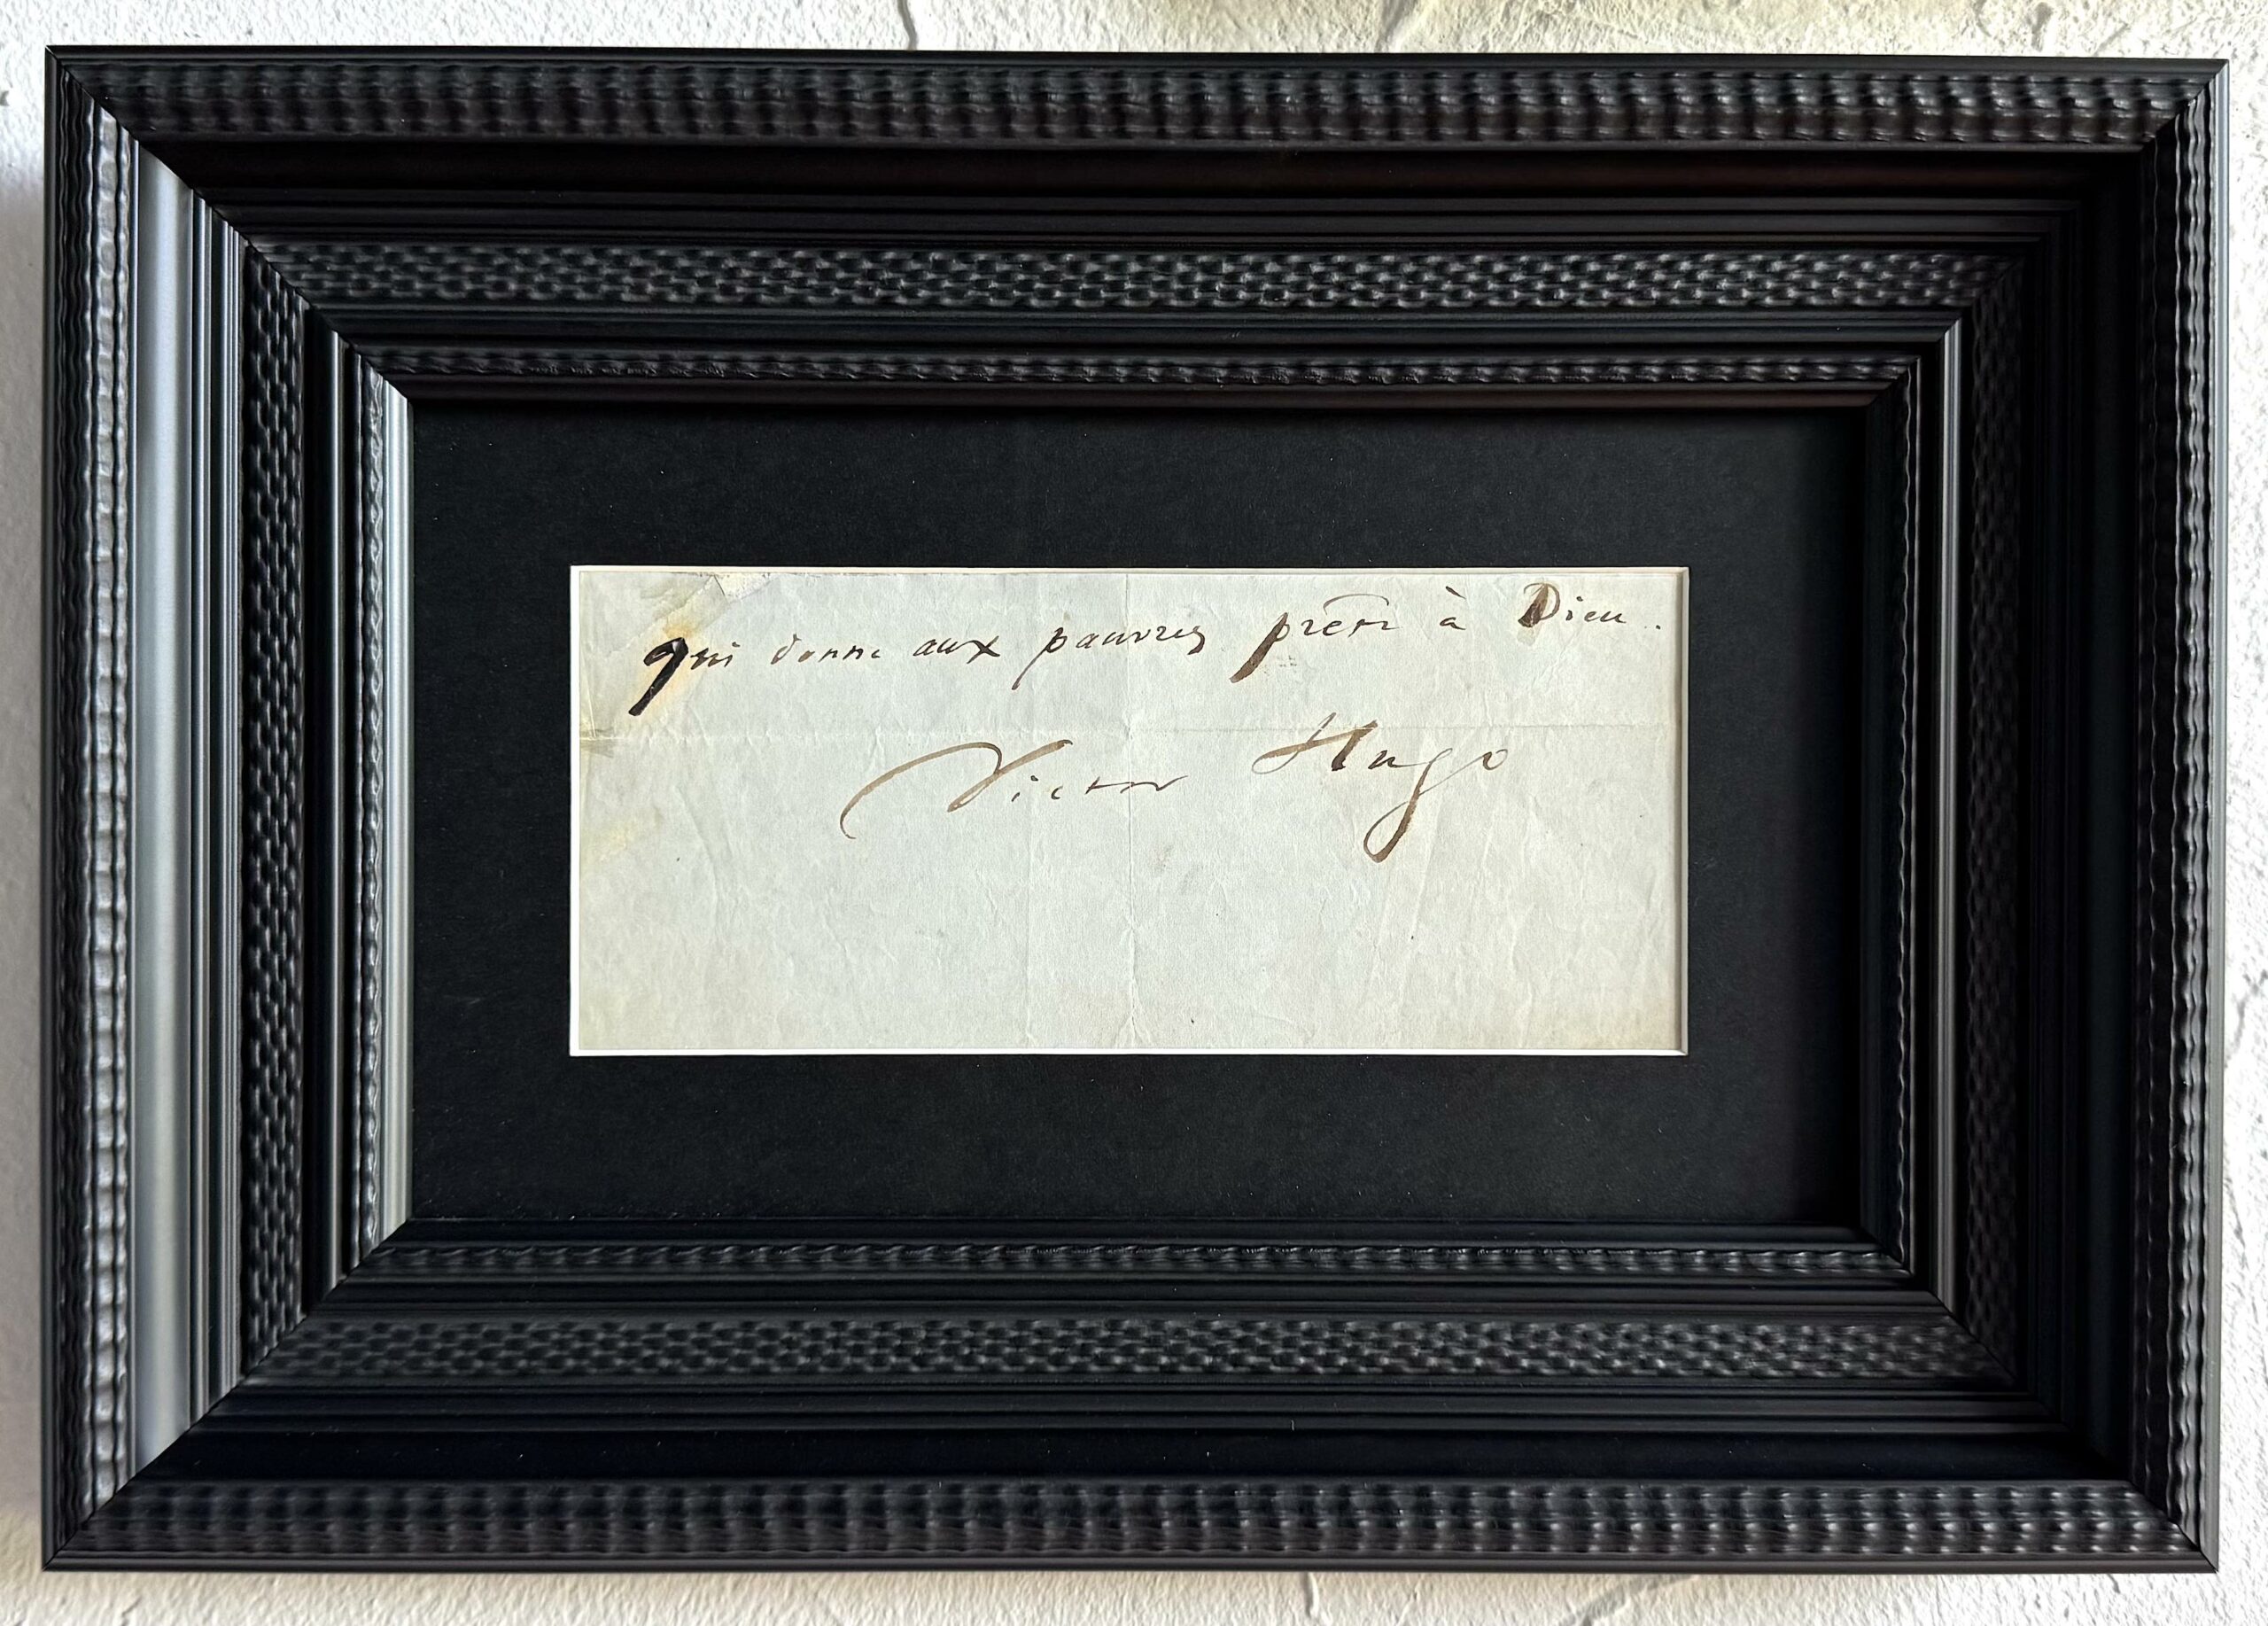 qui donne aux pauvres prête à Dieu.
Victor Hugo